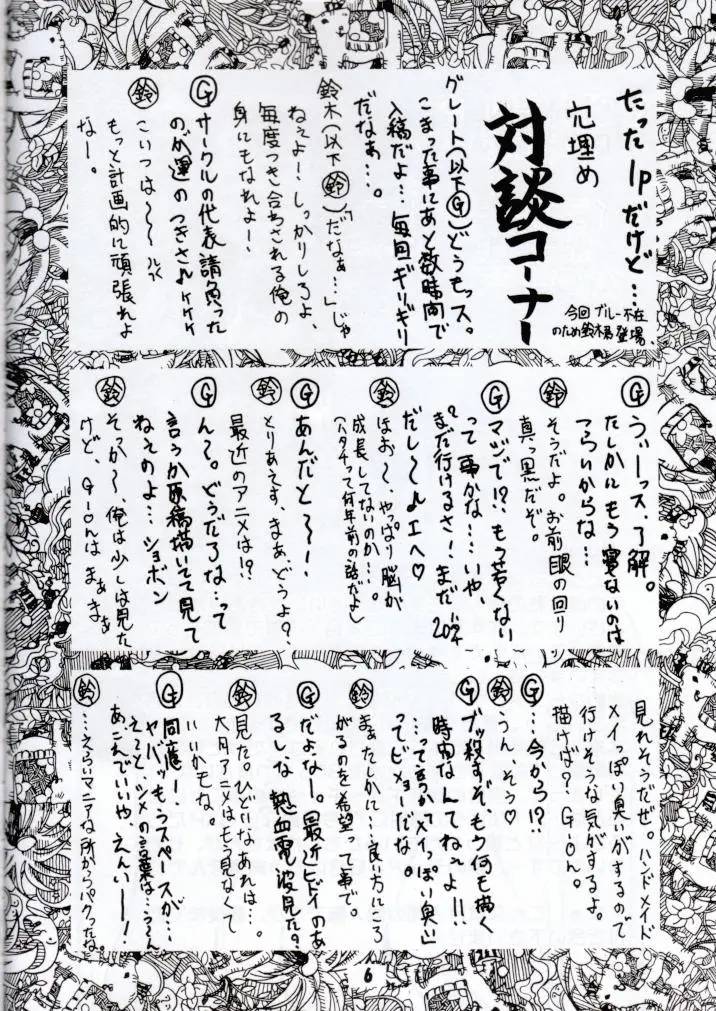 たった1pだけど…
穴埋め
対談コーナー
今回ブルー不在
のため鈴木君登場。
グレート(以下Ⓖ)どうもッス。
こまった事にあと数時間で
入稿だよ…毎回ギリギリ
だなぁ…。
鈴木(以下㊕鈴)「だなぁ…」じゃ
ねぇよ!しっかりしろよ、
毎度つき合わされる俺の
身にもなれよー!
Ⓖ サークルの代表請負った
のが運のつきさ♪ケケケ
鈴 こいつは〜〜
もっと計画的に頑張れよ
なー。
Ⓖ うぃーっス。了解。
たしかにもう寝ないのは
つらいからな…
鈴 そうだよ。お前眼の回り
真っ黒だぞ。
Ⓖ マジで!?もう若くない
って事かな…いや、
まだ行けるさ!まだ20才
だし〜♪エヘ♡
鈴 ほお〜、やっぱり脳が
成長してないのか…。
(ハタチって何年前の話だよ)
Ⓖ あんだと〜!
鈴 とりあえず、まあどうよ?
最近のアニメは!?
Ⓖ ん〜。どうだろな…って
言うか原稿描いてて見て
ねぇのよ…ショボン
鈴 そっか〜、俺は少しは見た
けど、G-onはまぁまぁ
見れそうだぜ。ハンドメイド
メイっぽい臭いがするので
行けそうな気がするよ。
描けば?G-on。
Ⓖ …今から!?
鈴 うん、そう♡
Ⓖ ブッ殺すぞもう何も描く
時間なんてねぇよ!!
…って言うか「メイっぽい臭い」
ってビミョーだな。
鈴 まぁたしかに…良い方にころ
がるのを希望って事で。
Ⓖ だよなー。最近ヒドイのあ
るしな 熱血電波見た?
鈴 見た。ひどいなあれは…。
大月アニメはもう見なくて
いいかもな。
Ⓖ 同感ー。
ヤバッもうスペースが…
えーと、シメの言葉は…う〜ん
あこんでいいや、えんいー!
鈴 …えらいマニアな所からパクったね。
6